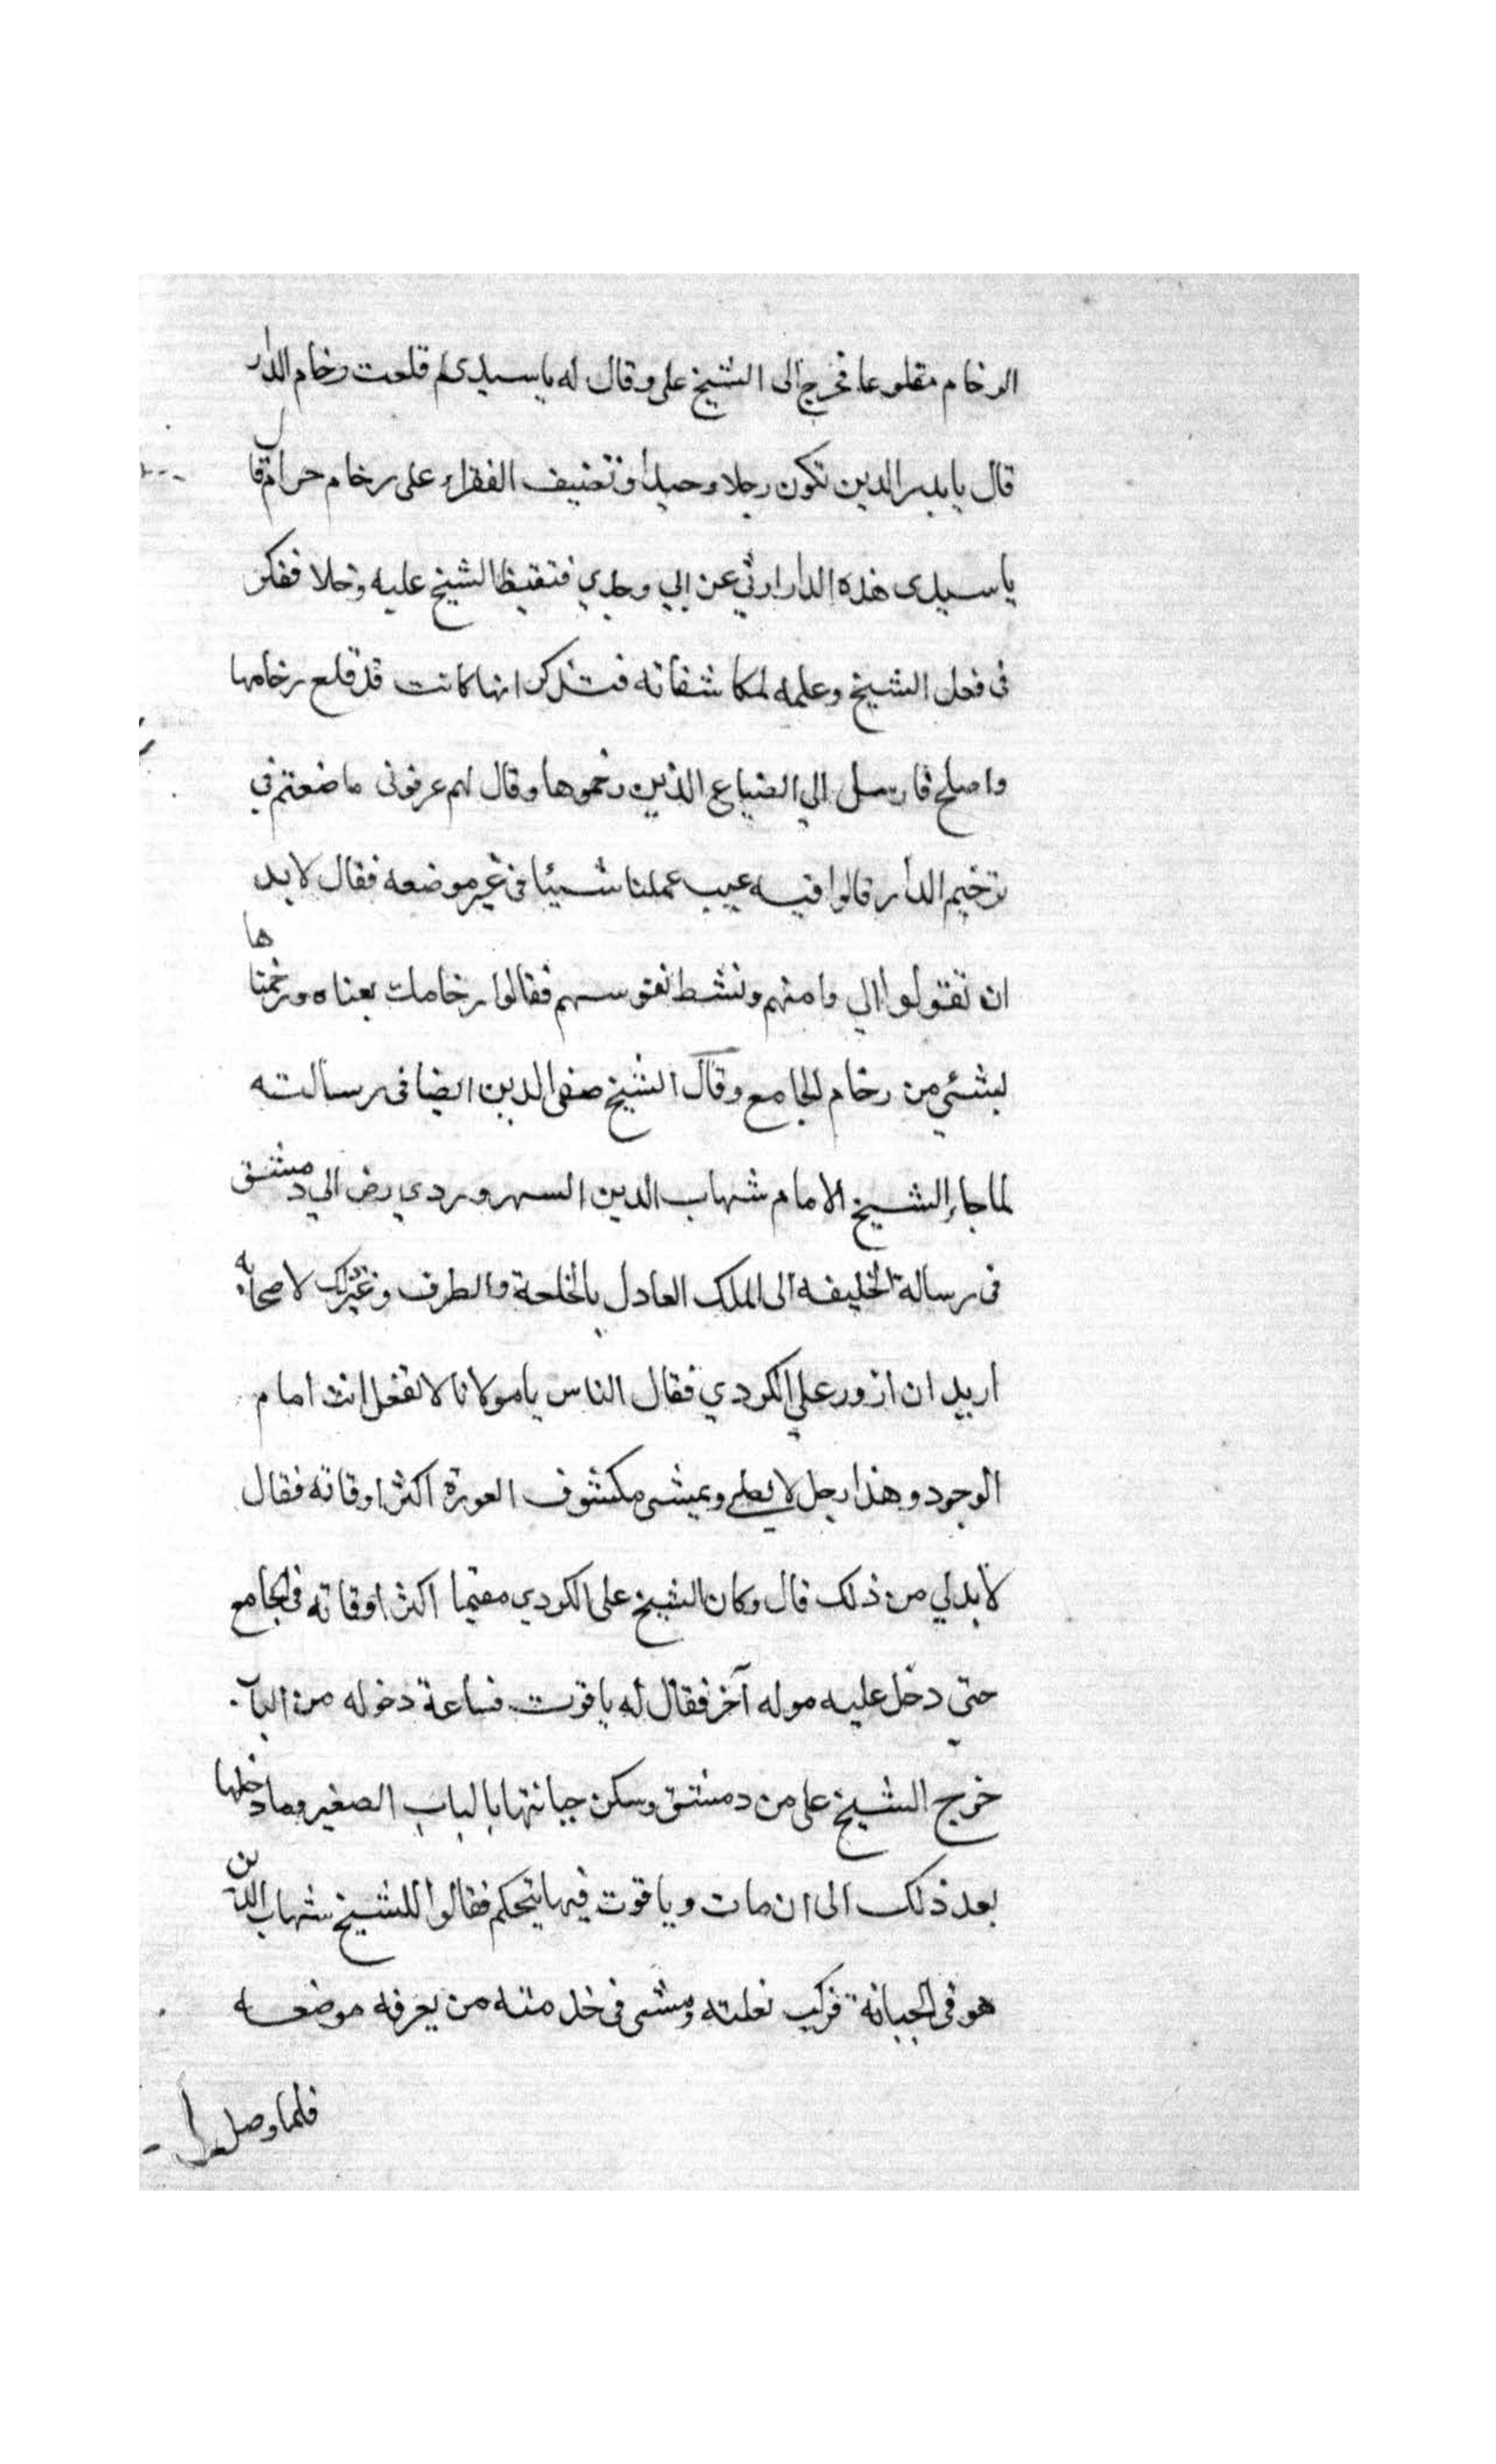 الرخام مقلوعا فخرج الى الشيخ على وقال له يا سيدى لم قلعت رخام الدار
قال يا بدر الدين تكون رجلا وحيدا وتضيف الفقراء على رخام حرام قال
يا سيدى هذه الدار ارثي عن ابي وجدي فتغيظ الشيخ عليه وخلا ففكر
فى فعل الشيخ وعلمه لمكاشفاته فتذكر انها كانت قد قلع رخامها
واصلح فارسل الي الصناع الذين رخموها وقال لهم عرفونى ما صنعتم في
ترخيم الدار قالوا فيه عيب عملنا شيئا فى غير موضعه فقال لا بد
ان تقولوا الي وامنهم ونشط نفوسهم فقالوا رخامك بعناه ورخمناها
بشئي من رخام الجامع وقال الشيخ صفى الدين ايضا فى رسالته
لما جاء الشيخ الامام شهاب الدين السهروردي رض الي دمشق
فى رسالة الخليفه الى الملك العادل بالخلعة والطرف وغير ذلك لاصحابه
اريد ان ازور علي الكردي فقال الناس يا مولانا لا تفعل انت امام
الوجود وهذا رجل لا يصلى ويمشى مكشوف العورة اكثر اوقاته فقال
لا بد لي من ذلك قال وكان الشيخ على الكردي مقيما اكثر اوقاته فى الجامع
حتي دخل عليه موله آخر فقال له ياقوت فساعة دخوله من الباب
خرج الشيخ على من دمشق وسكن جبانتها بالباب الصغير وما دخلها
بعد ذلك الى ان مات وياقوت فيها يتحكم فقالوا للشيخ شهاب الدين
هو فى الجبانة فركب بغلته ومشى فى خدمته من يعرفه موضعه
فلما وصل